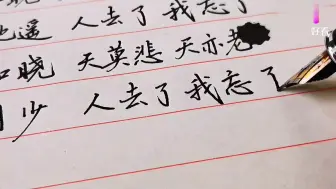 遥 人去了 我忘了
晓 天莫悲 天亦老
少 人去了 我忘了
好看